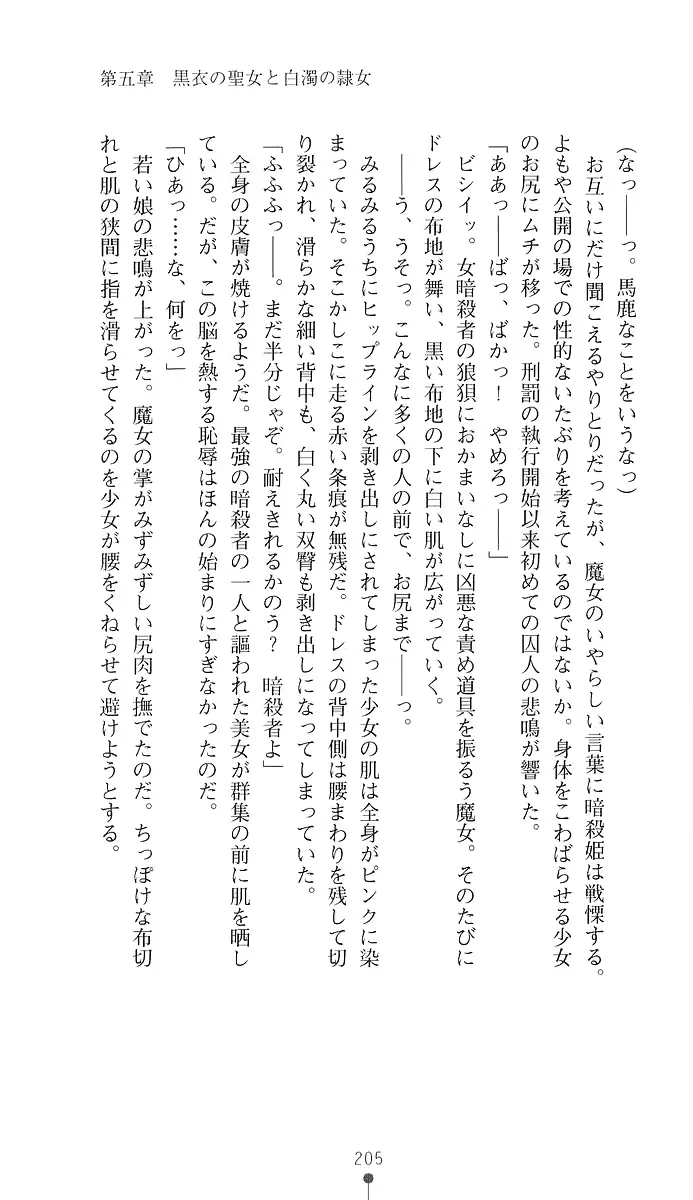 第五章　黒衣の聖女と白濁の隷女
(なっ――っ。馬鹿なことをいうなっ)
お互いにだけ聞こえるやりとりだったが、魔女のいやらしい言葉に暗殺姫は戦慄する。
よもや公開の場での性的ないたぶりを考えているのではないか。身体をこわばらせる少女
のお尻にムチが移った。刑罰の執行開始以来初めての囚人の悲鳴が響いた。
「ああっ――ばっ、ばかっ！　やめろっ――」
ビシイッ。女暗殺者の狼狽におかまいなしに凶悪な責め道具を振るう魔女。そのたびに
ドレスの布地が舞い、黒い布地の下に白い肌が広がっていく。
――う、うそっ。こんなに多くの人の前で、お尻まで――っ。
みるみるうちにヒップラインを剥き出しにされてしまった少女の肌は全身がピンクに染
まっていた。そこかしこに走る赤い条痕が無残だ。ドレスの背中側は腰まわりを残して切
り裂かれ、滑らかな細い背中も、白く丸い双臀も剥き出しになってしまっていた。
「ふふふっ――。まだ半分じゃぞ。耐えきれるかのう？　暗殺者よ」
全身の皮膚が焼けるようだ。最強の暗殺者の一人と謳われた美女が群集の前に肌を晒し
ている。だが、この脳を熱する恥辱はほんの始まりにすぎなかったのだ。
「ひあっ……な、何をっ」
若い娘の悲鳴が上がった。魔女の掌がみずみずしい尻肉を撫でたのだ。ちっぽけな布切
れと肌の狭間に指を滑らせてくるのを少女が腰をくねらせて避けようとする。
205